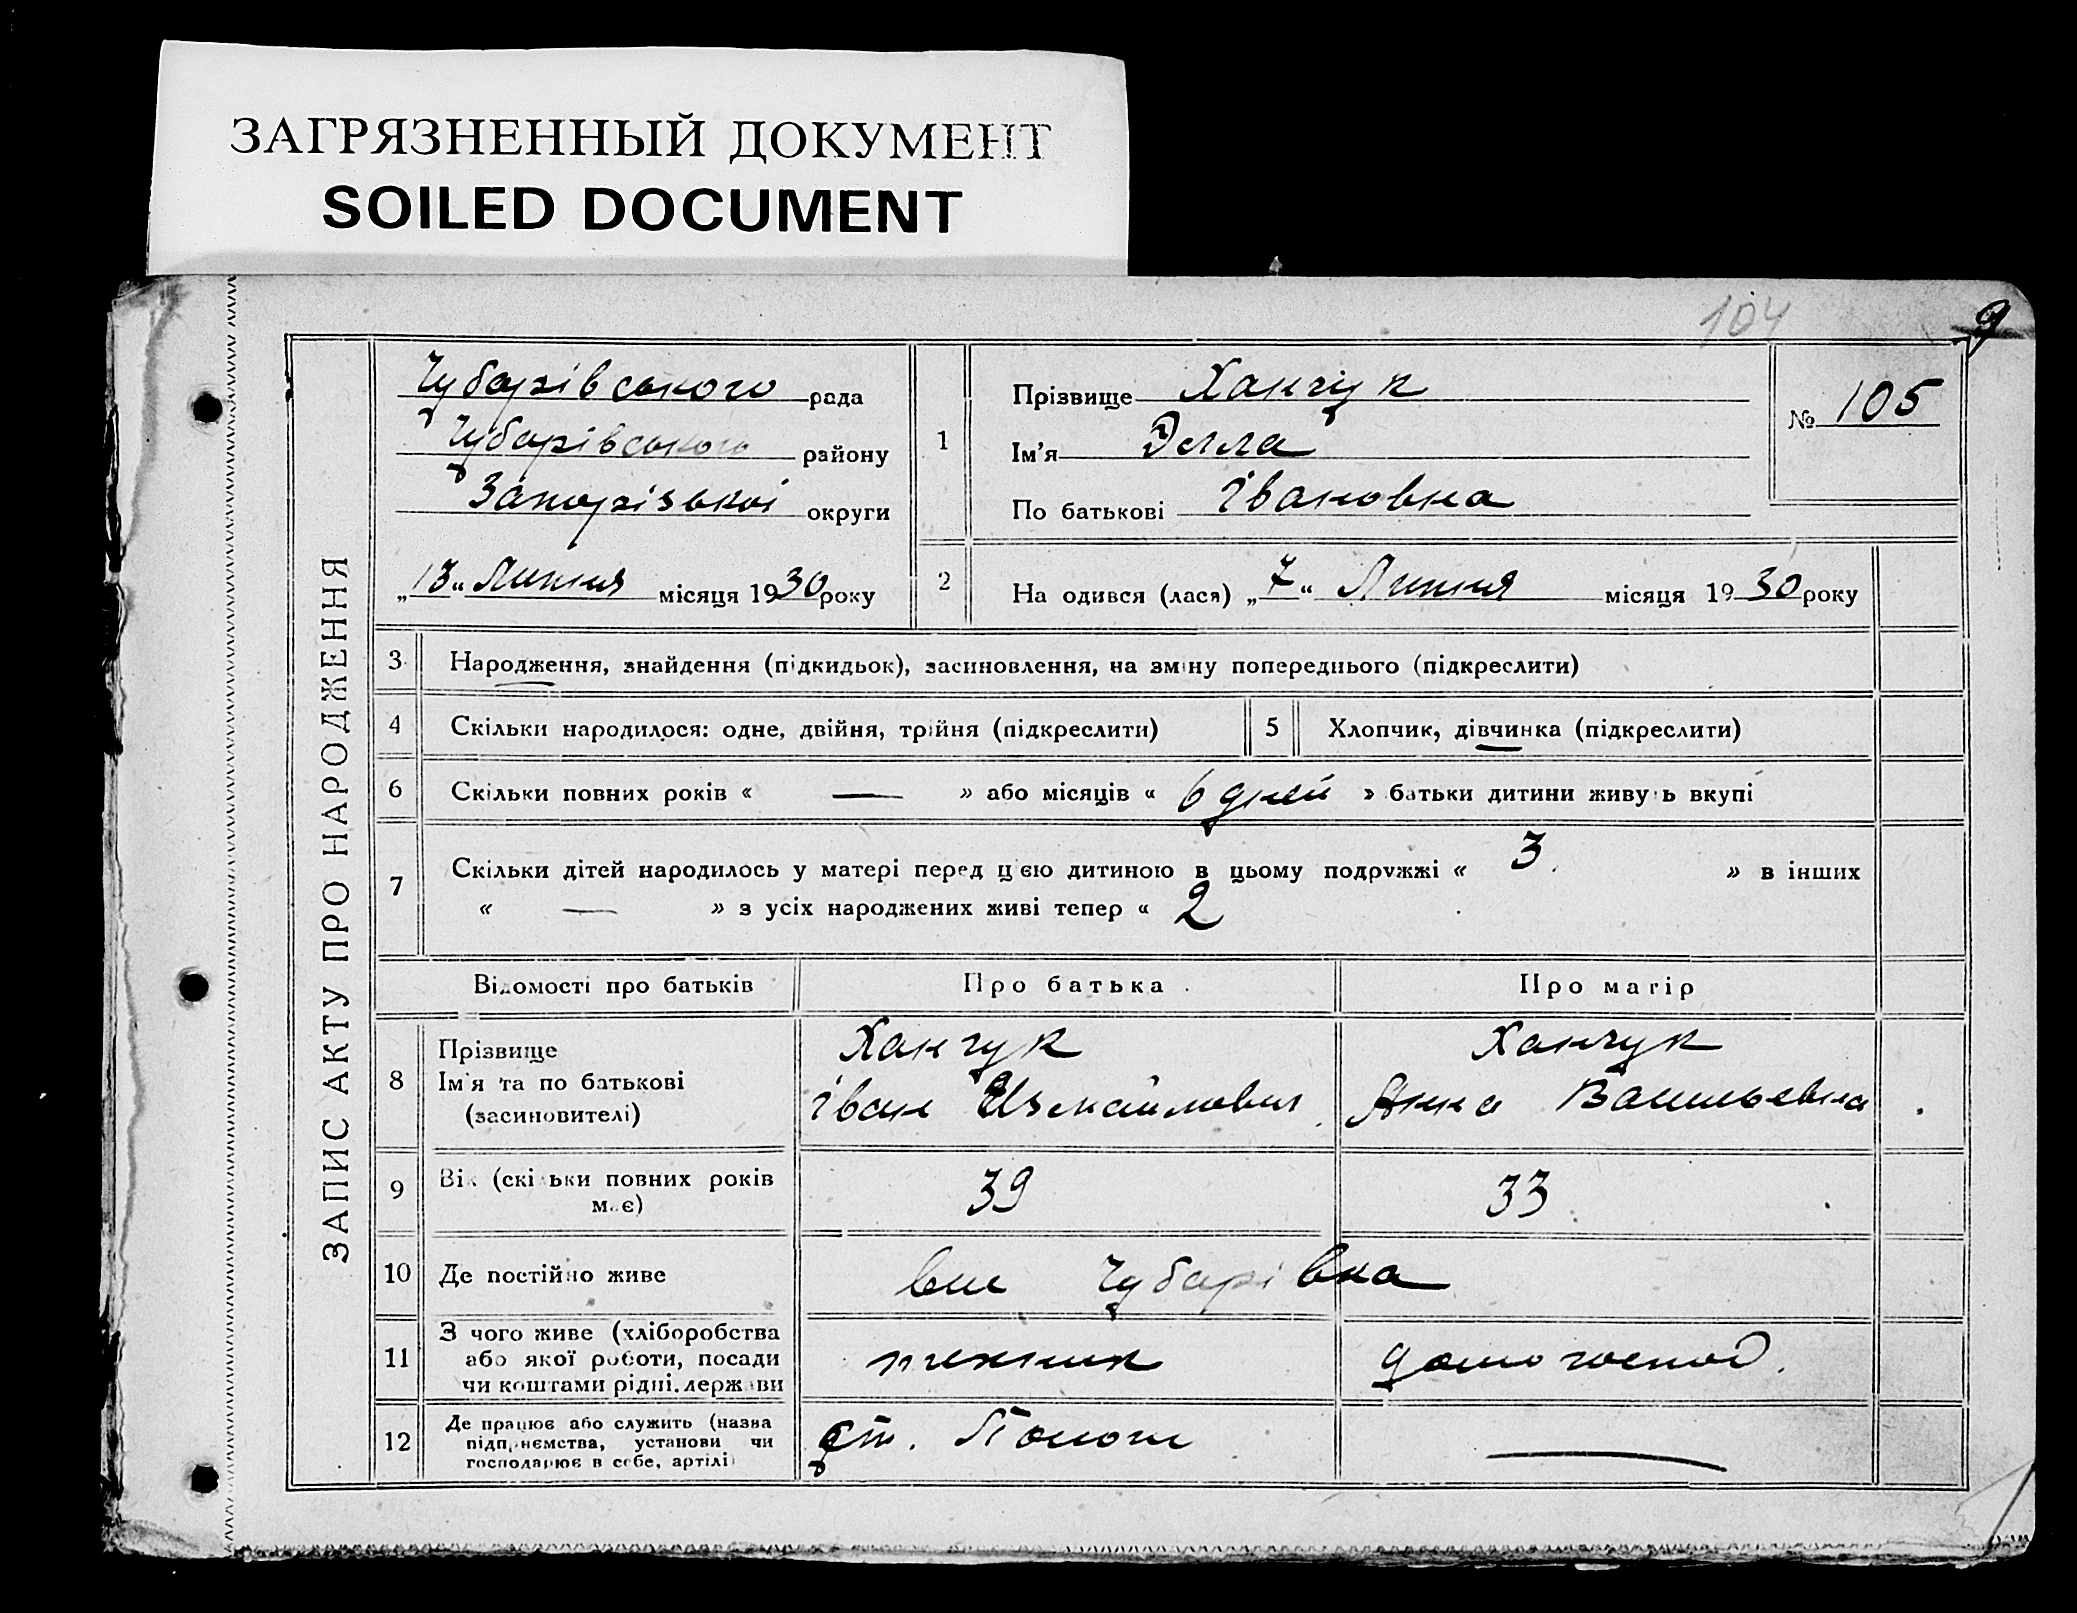 ЗАГРЯЗНЕННЫЙ ДОКУМЕНТ
SOILED DOCUMENT
104
9
ЗАПИС АКТУ ПРО НАРОДЖЕННЯ
Чубарівського рада
Чубарівського району
Запорізької округи
„13“ Липня місяця 1930 року
1
Прізвище Ханчук
Ім'я Элла
По батькові Івановна
№ 105
2 На одився (лася) „7“ Липня місяця 1930 року
3 Народження, знайдення (підкидьок), засиновлення, на зміну попереднього (підкреслити)
4 Скільки народилося: одне, двійня, трійня (підкреслити)
5 Хлопчик, дівчинка (підкреслити)
6 Скільки повних років « — » або місяців « 6 дней » батьки дитини живуть вкупі
7 Скільки дітей народилось у матері перед цією дитиною в цьому подружжі « 3 » в інших
« — » з усіх народжених живі тепер « 2
Відомості про батьків
Про батька
Про матір
8
Прізвище
Ім'я та по батькові
(засиновителі)
Ханчук
Іван Измайлович
Ханчук
Анна Васильевна
9 Вік (скільки повних років
має)
39
33
10 Де постійно живе
Чубарівка
11
З чого живе (хліборобства
або якої роботи, посади
чи коштами рідні, держави
домогоспод.
12
Де працює або служить (назва
підприємства, установи чи
господарює в себе, артілі
ст. Пологи
—